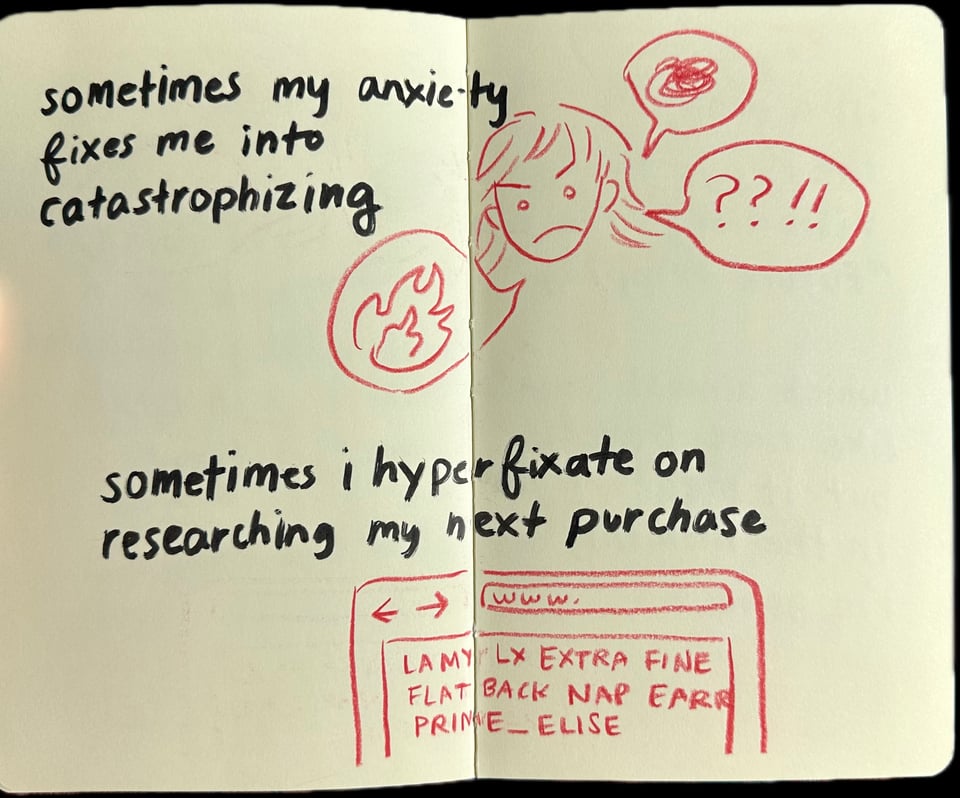 sometimes my anxiety
fixes me into
catastrophizing
??!!
sometimes i hyperfixate on
researching my next purchase
← → www.
LAMY LX EXTRA FINE
FLAT BACK NAP EARR